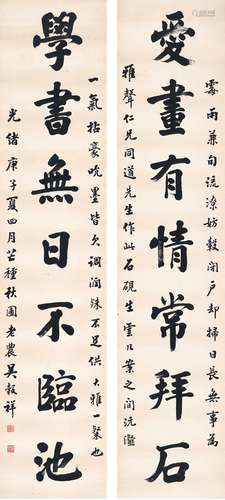 愛畫有情常拜石
學書無日不臨池
霉雨兼旬流潦妨轂閉戶却掃日長無事為
雅聲仁兄同道先生作此石硯生雲几案之間沆瀣
一氣枯豪吮墨皆欠調潤殊不足供大雅一粲也
光緒庚子夏四月芒種秋圃老農吳穀祥